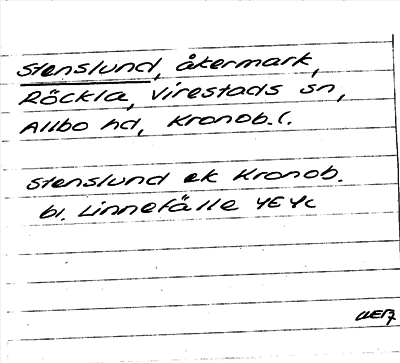 Stenslund, åkermark,
Röckla, Virestads sn,
Allbo hd, Kronob. l.
Stenslund ek Kronob.
bl. Linnefälle 4E4c